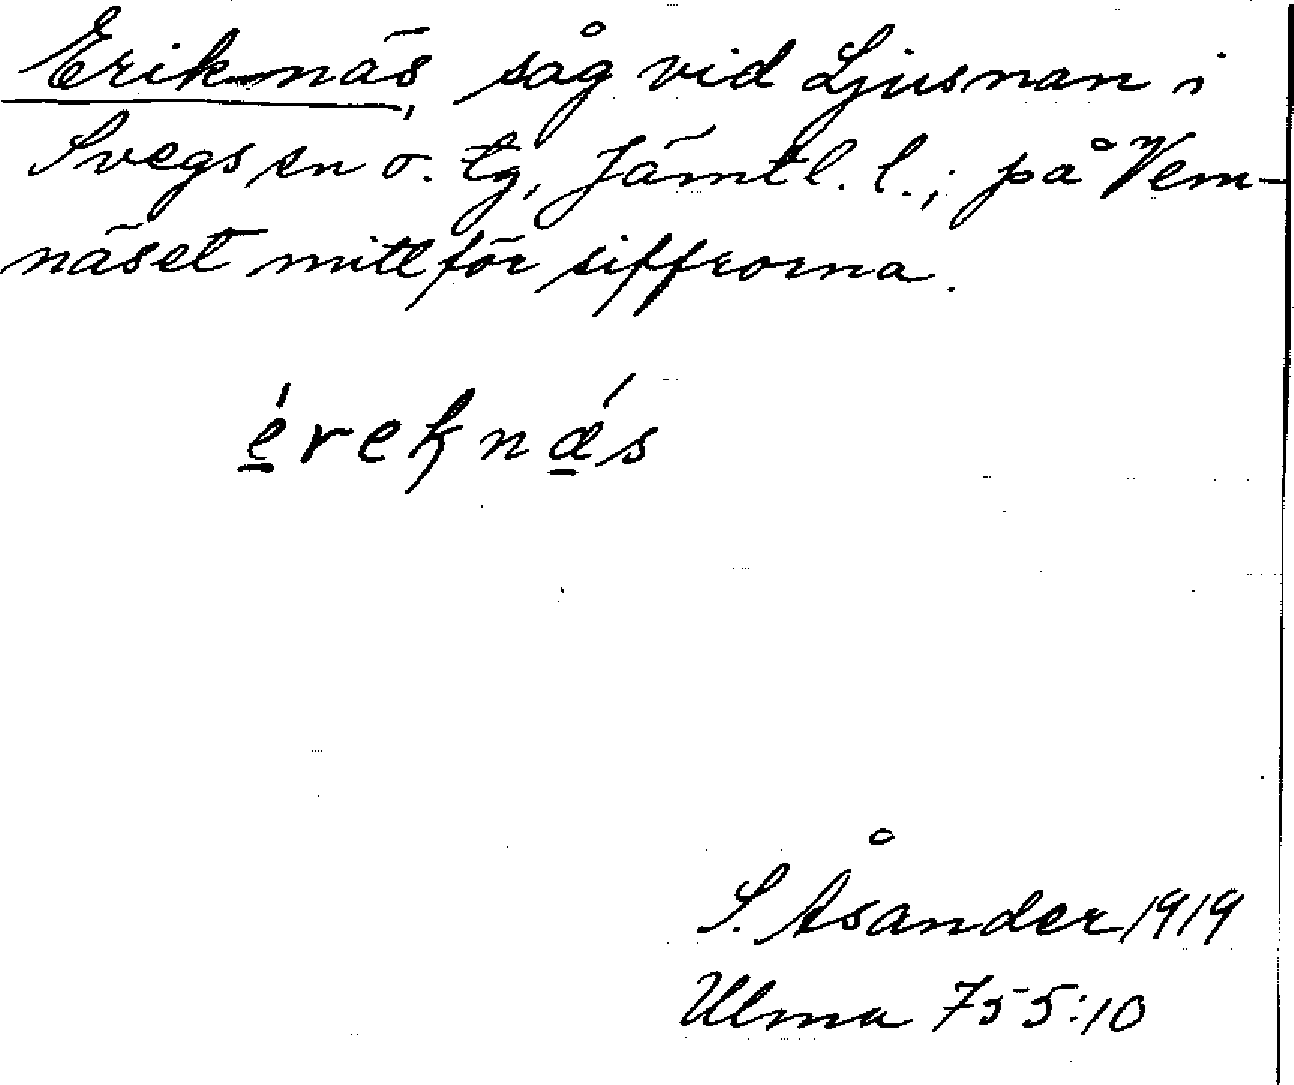 Eriknäs, såg vid Ljusnan i
Svegs sn o. tg, Jämtl. l.; på Vem-
näset mitt för siffrorna.
éreknǽs
S. Åsander 1919
Ulma 755:10